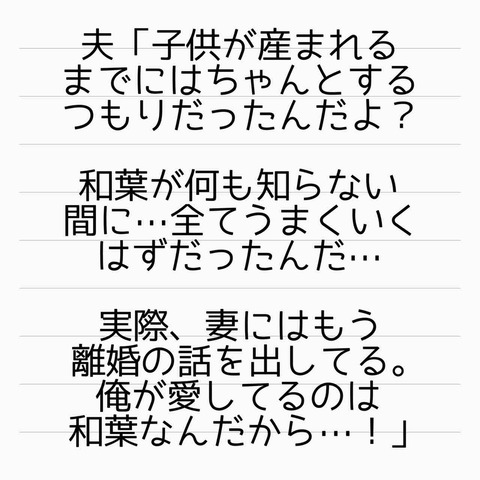 夫「子供が産まれる
までにはちゃんとする
つもりだったんだよ？
和葉が何も知らない
間に…全てうまくいく
はずだったんだ…
実際、妻にはもう
離婚の話を出してる。
俺が愛してるのは
和葉なんだから…！」